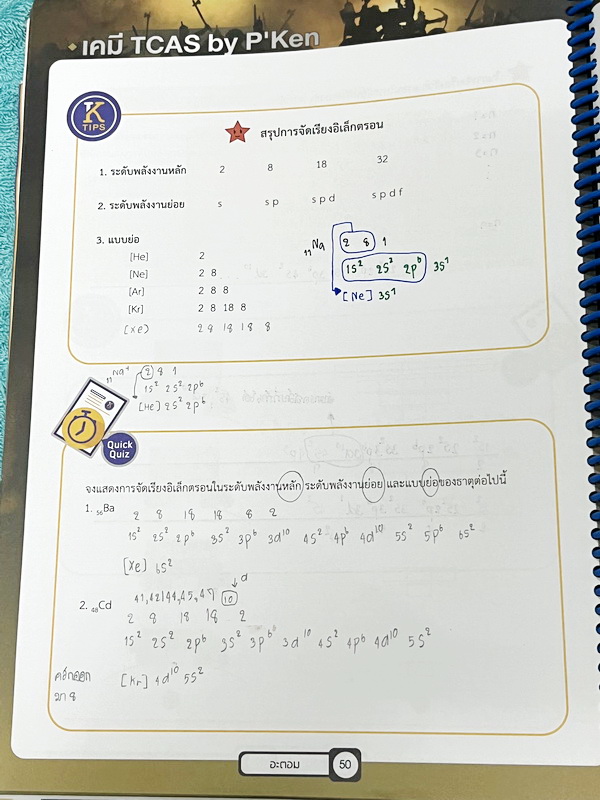 เคมี TCAS by P'Ken
K
TIPS
สรุปการจัดเรียงอิเล็กตรอน
1. ระดับพลังงานหลัก 2 8 18 32
2. ระดับพลังงานย่อย s s p s p d s p d f
3. แบบย่อ
[He] 2
[Ne] 2 8
[Ar] 2 8 8
[Kr] 2 8 18 8
[Xe] 2 8 18 18 8
₁₁Na 2 8 1
1s² 2s² 2p⁶ 3s¹
[Ne] 3s¹
₁₁Na⁺ 2 8 1
1s² 2s² 2p⁶
[He] 2s² 2p⁶
Quick
Quiz
จงแสดงการจัดเรียงอิเล็กตรอนในระดับพลังงานหลัก ระดับพลังงานย่อย และแบบย่อของธาตุต่อไปนี้
1. ₅₆Ba
2 8 18 18 8 2
1s² 2s² 2p⁶ 3s² 3p⁶ 3d¹⁰ 4s² 4p⁶ 4d¹⁰ 5s² 5p⁶ 6s²
[Xe] 6s²
d
2. ₄₈Cd 41,42,44,45,47 10
2 8 18 18 2
1s² 2s² 2p⁶ 3s² 3p⁶ 3d¹⁰ 4s² 4p⁶ 4d¹⁰ 5s²
[Kr] 4d¹⁰ 5s²
มา 8
อะตอม 50